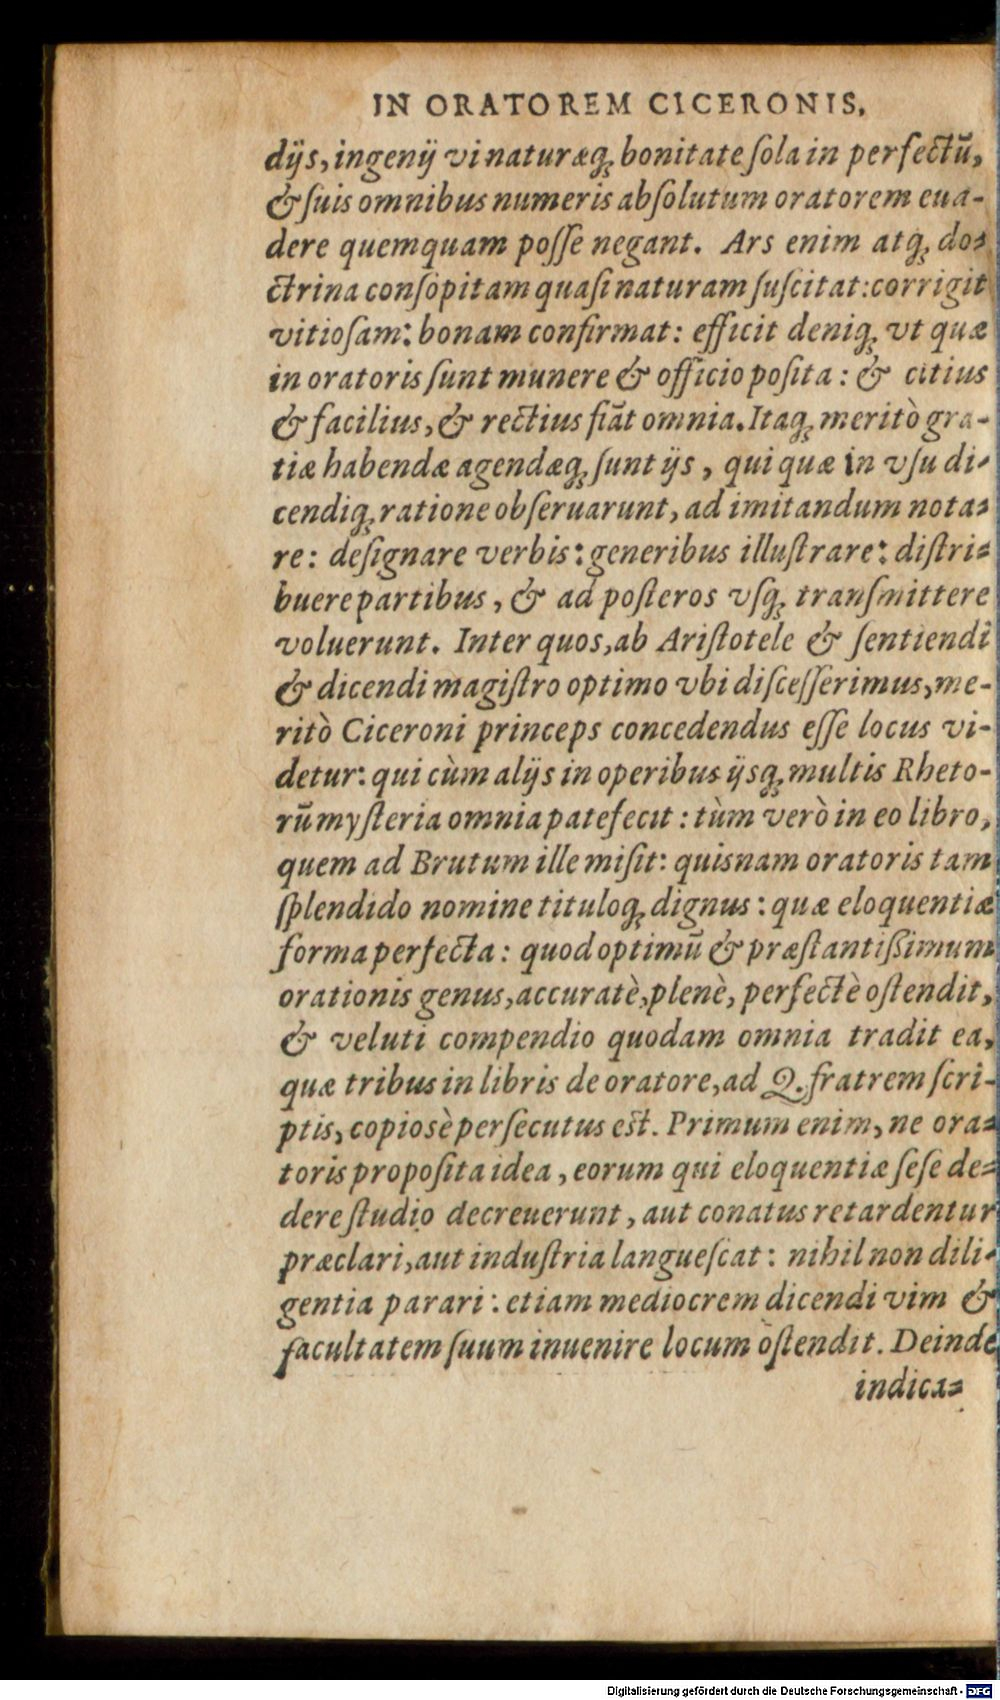 IN ORATOREM CICERONIS.
dijs, ingenij vi naturæq́ꝫ bonitate ſola in perfectũ,
& ſuis omnibus numeris abſolutum oratorem eua-
dere quemquam poſſe negant. Ars enim atq́ꝫ do-
ctrina conſopitam quaſi naturam ſuſcitat: corrigit
vitioſam: bonam confirmat: efficit deniq́ꝫ vt quæ
in oratoris ſunt munere & officio poſita: & citius
& facilius, & rectius fiãt omnia. Itaq́ꝫ meritò gra-
tiæ habendæ agendæq́ꝫ ſunt ijs, qui quæ in vſu di-
cendiq́ꝫ ratione obſeruarunt, ad imitandum nota-
re: deſignare verbis: generibus illuſtrare: diſtri-
buere partibus, & ad poſteros vſq́ꝫ tranſmittere
voluerunt. Inter quos, ab Ariſtotele & ſentiendi
& dicendi magiſtro optimo vbi diſceſſerimus, me-
ritò Ciceroni princeps concedendus eſſe locus vi-
detur: qui cùm alijs in operibus ijsq́ꝫ multis Rheto-
rũ myſteria omnia patefecit: tùm verò in eo libro,
quem ad Brutum ille miſit: quisnam oratoris tam
ſplendido nomine tituloq́ꝫ dignus: quæ eloquentiæ
forma perfecta: quod optimũ & præſtantißimum
orationis genus, accuratè, plenè, perfectè oſtendit,
& veluti compendio quodam omnia tradit ea,
quæ tribus in libris de oratore, ad Q. fratrem ſcri-
ptis, copiosè perſecutus eſt. Primum enim, ne ora-
toris propoſita idea, eorum qui eloquentiæ ſeſe de-
dere ſtudio decreuerunt, aut conatus retardentur
præclari, aut induſtria langueſcat: nihil non dili-
gentia parari: etiam mediocrem dicendi vim &
facultatem ſuum inuenire locum oſtendit. Deinde
indica-
Digitalisierung gefördert durch die Deutsche Forschungsgemeinschaft - DFG